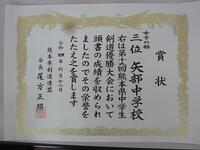 賞状
女子の部
三位 矢部中学校
右は第十回熊本県中学生
剣道優勝大会において
頭書の成績を収められ
ましたのでその栄誉を
たたえ之を賞します
令和四年六月十二日
熊本県剣道連盟
会長 尾方正照